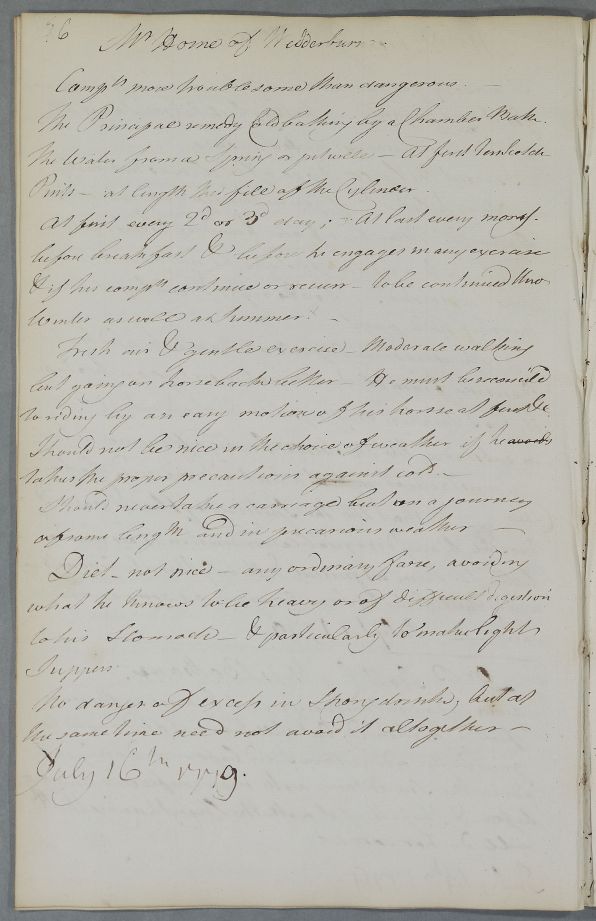 36
Mr. Home of Wedderburn
Compts more troublesome than dangerous. —
The Principal remedy Cold bathing by a Chamber Bath.
The Water from a Spring or pitwell — At first Scotch
Pints — at length the fill of the Cylinder.
At first every 2d or 3d day; — At last every morng.
before breakfast & before he engages in any exercise
& if his compts continue or recurr — to be continued thro
Winter as well as Summer. —
Fresh air & gentle exercise — Moderate walking
but going on horseback better — He must be reconciled
to riding by an easy motion of his horse at first &c
Should not be nice in the choice of weather if he avoids
takes the proper precautions against cold. —
Should never take a carriage but on a journey
of some length and in precarious weather —
Diet — not nice — any ordinary fare, avoiding
what he knows to be heavy or of difficult digestion
to his Stomach — & particularly to make light
Suppers
No danger of excess in Strong drink, but at
the same time need not avoid it altogether —
July 16th 1779.